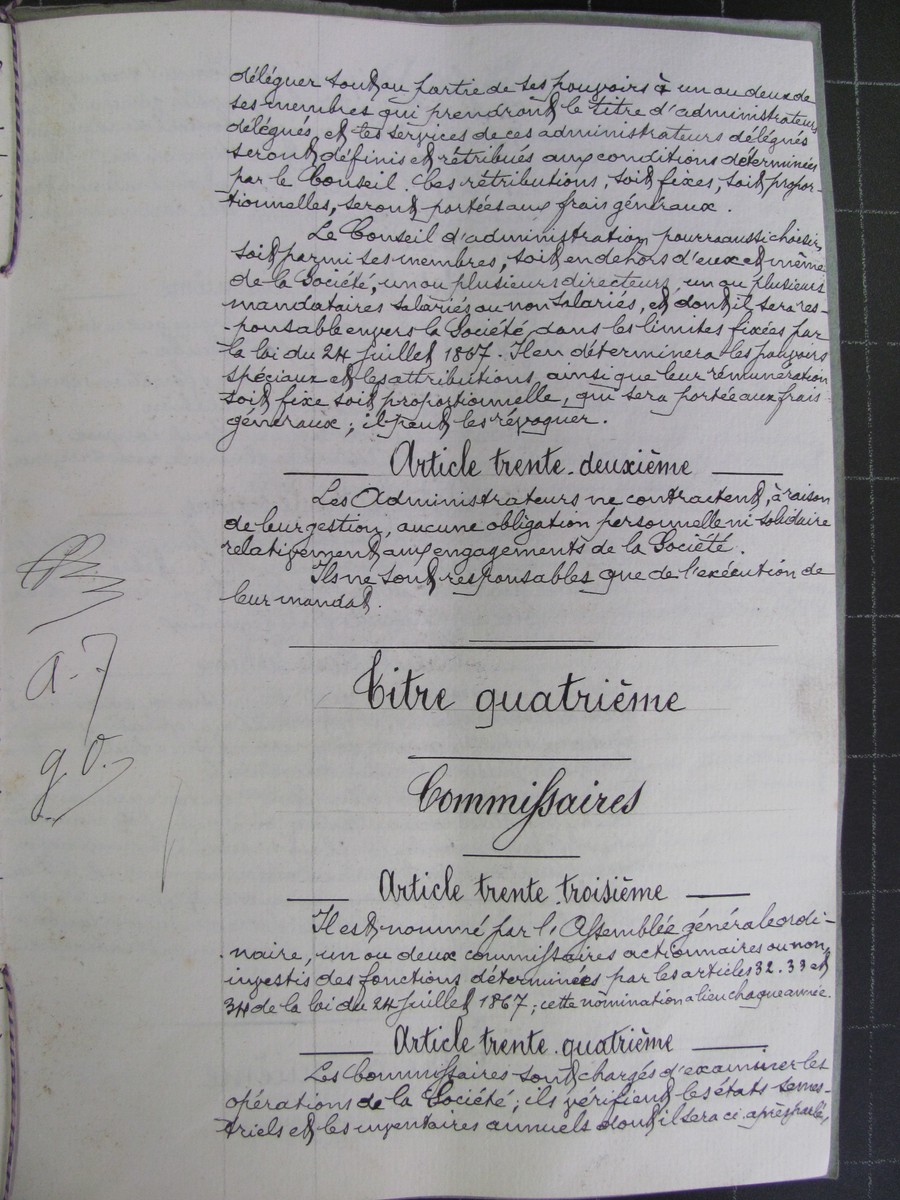 déléguer tout ou partie de ses pouvoirs à un ou deux de
ses membres qui prendront le titre d'administrateurs
délégués, et les services de ces administrateurs délégués
seront définis et rétribués aux conditions déterminées
par le Conseil. Ces rétributions, soit fixes, soit propor-
tionnelles, seront portées aux frais généraux.
Le Conseil d'administration pourra aussi choisir,
soit parmi ses membres, soit en dehors d'eux et même
de la Société, un ou plusieurs directeurs, un ou plusieurs
mandataires salariés ou non salariés, et dont il sera res-
-ponsable envers la Société dans les limites fixées par
la loi du 24 juillet 1867. Il en déterminera les pouvoirs
spéciaux et les attributions, ainsi que leur rémunération
soit fixe soit proportionnelle, qui sera portée aux frais
généraux; il peut les révoquer.
Article trente-deuxième
Les Administrateurs ne contractent, à raison
de leur gestion, aucune obligation personnelle ni solidaire
relativement aux engagements de la Société.
Ils ne sont responsables que de l'exécution de
leur mandat.
a. 7
g. o.
Titre quatrième
Commissaires
Article trente-troisième
Il est nommé par l'Assemblée générale ordi-
naire, un ou deux commissaires actionnaires ou non,
investis des fonctions déterminées par les articles 32. 33 et
34 de la loi du 24 juillet 1867; cette nomination a lieu chaque année.
Article trente-quatrième
Les Commissaires sont chargés d'examiner les
opérations de la Société; ils vérifient les états semes-
triels et les inventaires annuels dont il sera ci-après parlé,